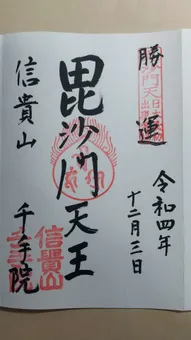 勝運
令和四年
十二月三日
毘沙門天王
信貴山
千手院
信貴山